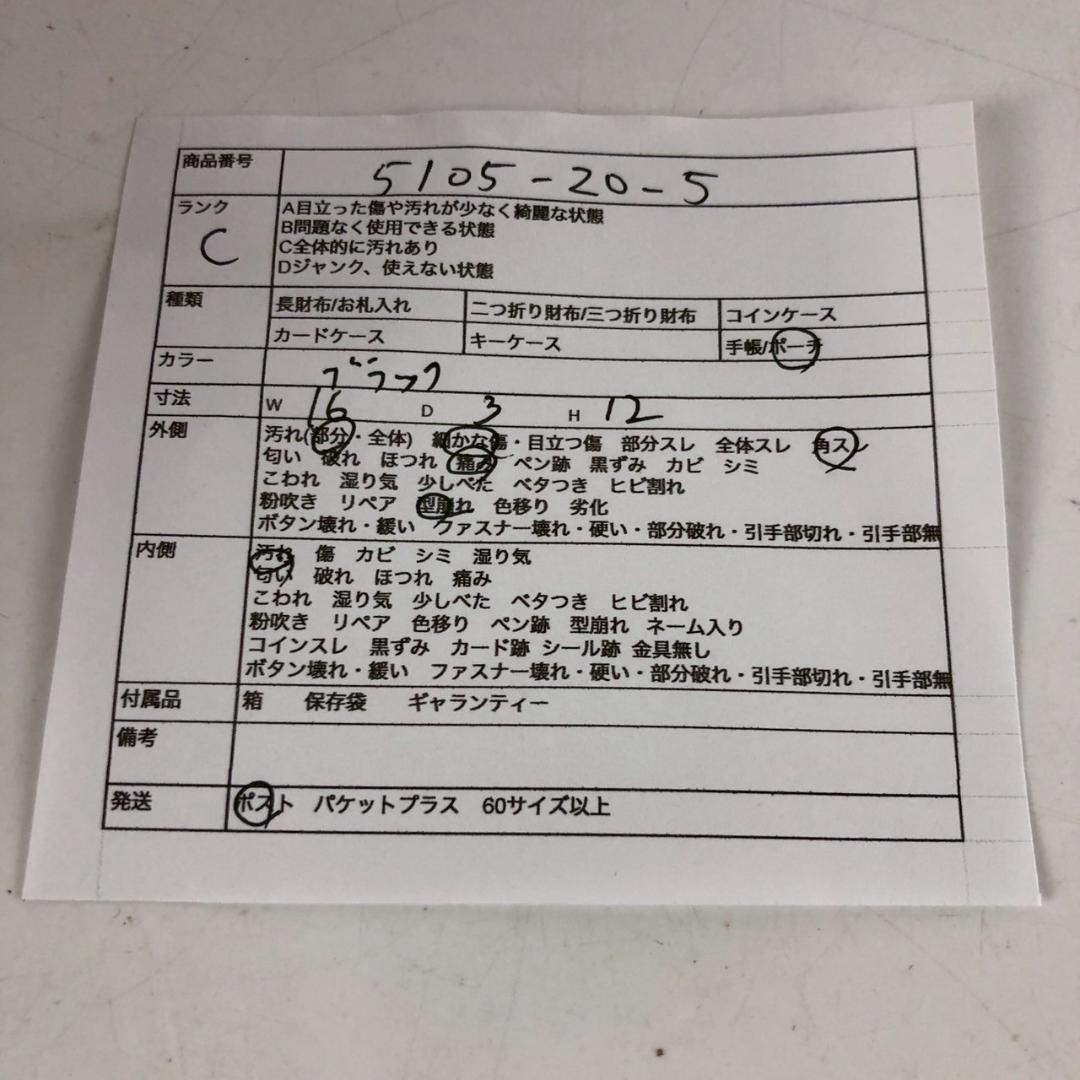 商品番号 5105-20-5
ランク A目立った傷や汚れが少なく綺麗な状態
B問題なく使用できる状態
C C全体的に汚れあり
Dジャンク、使えない状態
種類 長財布/お札入れ 二つ折り財布/三つ折り財布 コインケース
カードケース キーケース 手帳/ポーチ
カラー ブラック
寸法 W 16 D 3 H 12
外側 汚れ(部分・全体) 細かな傷・目立つ傷 部分スレ 全体スレ 角スレ
匂い 破れ ほつれ 痛み ペン跡 黒ずみ カビ シミ
こわれ 湿り気 少しべた ベタつき ヒビ割れ
粉吹き リペア 型崩れ 色移り 劣化
ボタン壊れ・緩い ファスナー壊れ・硬い・部分破れ・引手部切れ・引手部無
内側 汚れ 傷 カビ シミ 湿り気
匂い 破れ ほつれ 痛み
こわれ 湿り気 少しべた ベタつき ヒビ割れ
粉吹き リペア 色移り ペン跡 型崩れ ネーム入り
コインスレ 黒ずみ カード跡 シール跡 金具無し
ボタン壊れ・緩い ファスナー壊れ・硬い・部分破れ・引手部切れ・引手部無
付属品 箱 保存袋 ギャランティー
備考
発送 ポスト パケットプラス 60サイズ以上